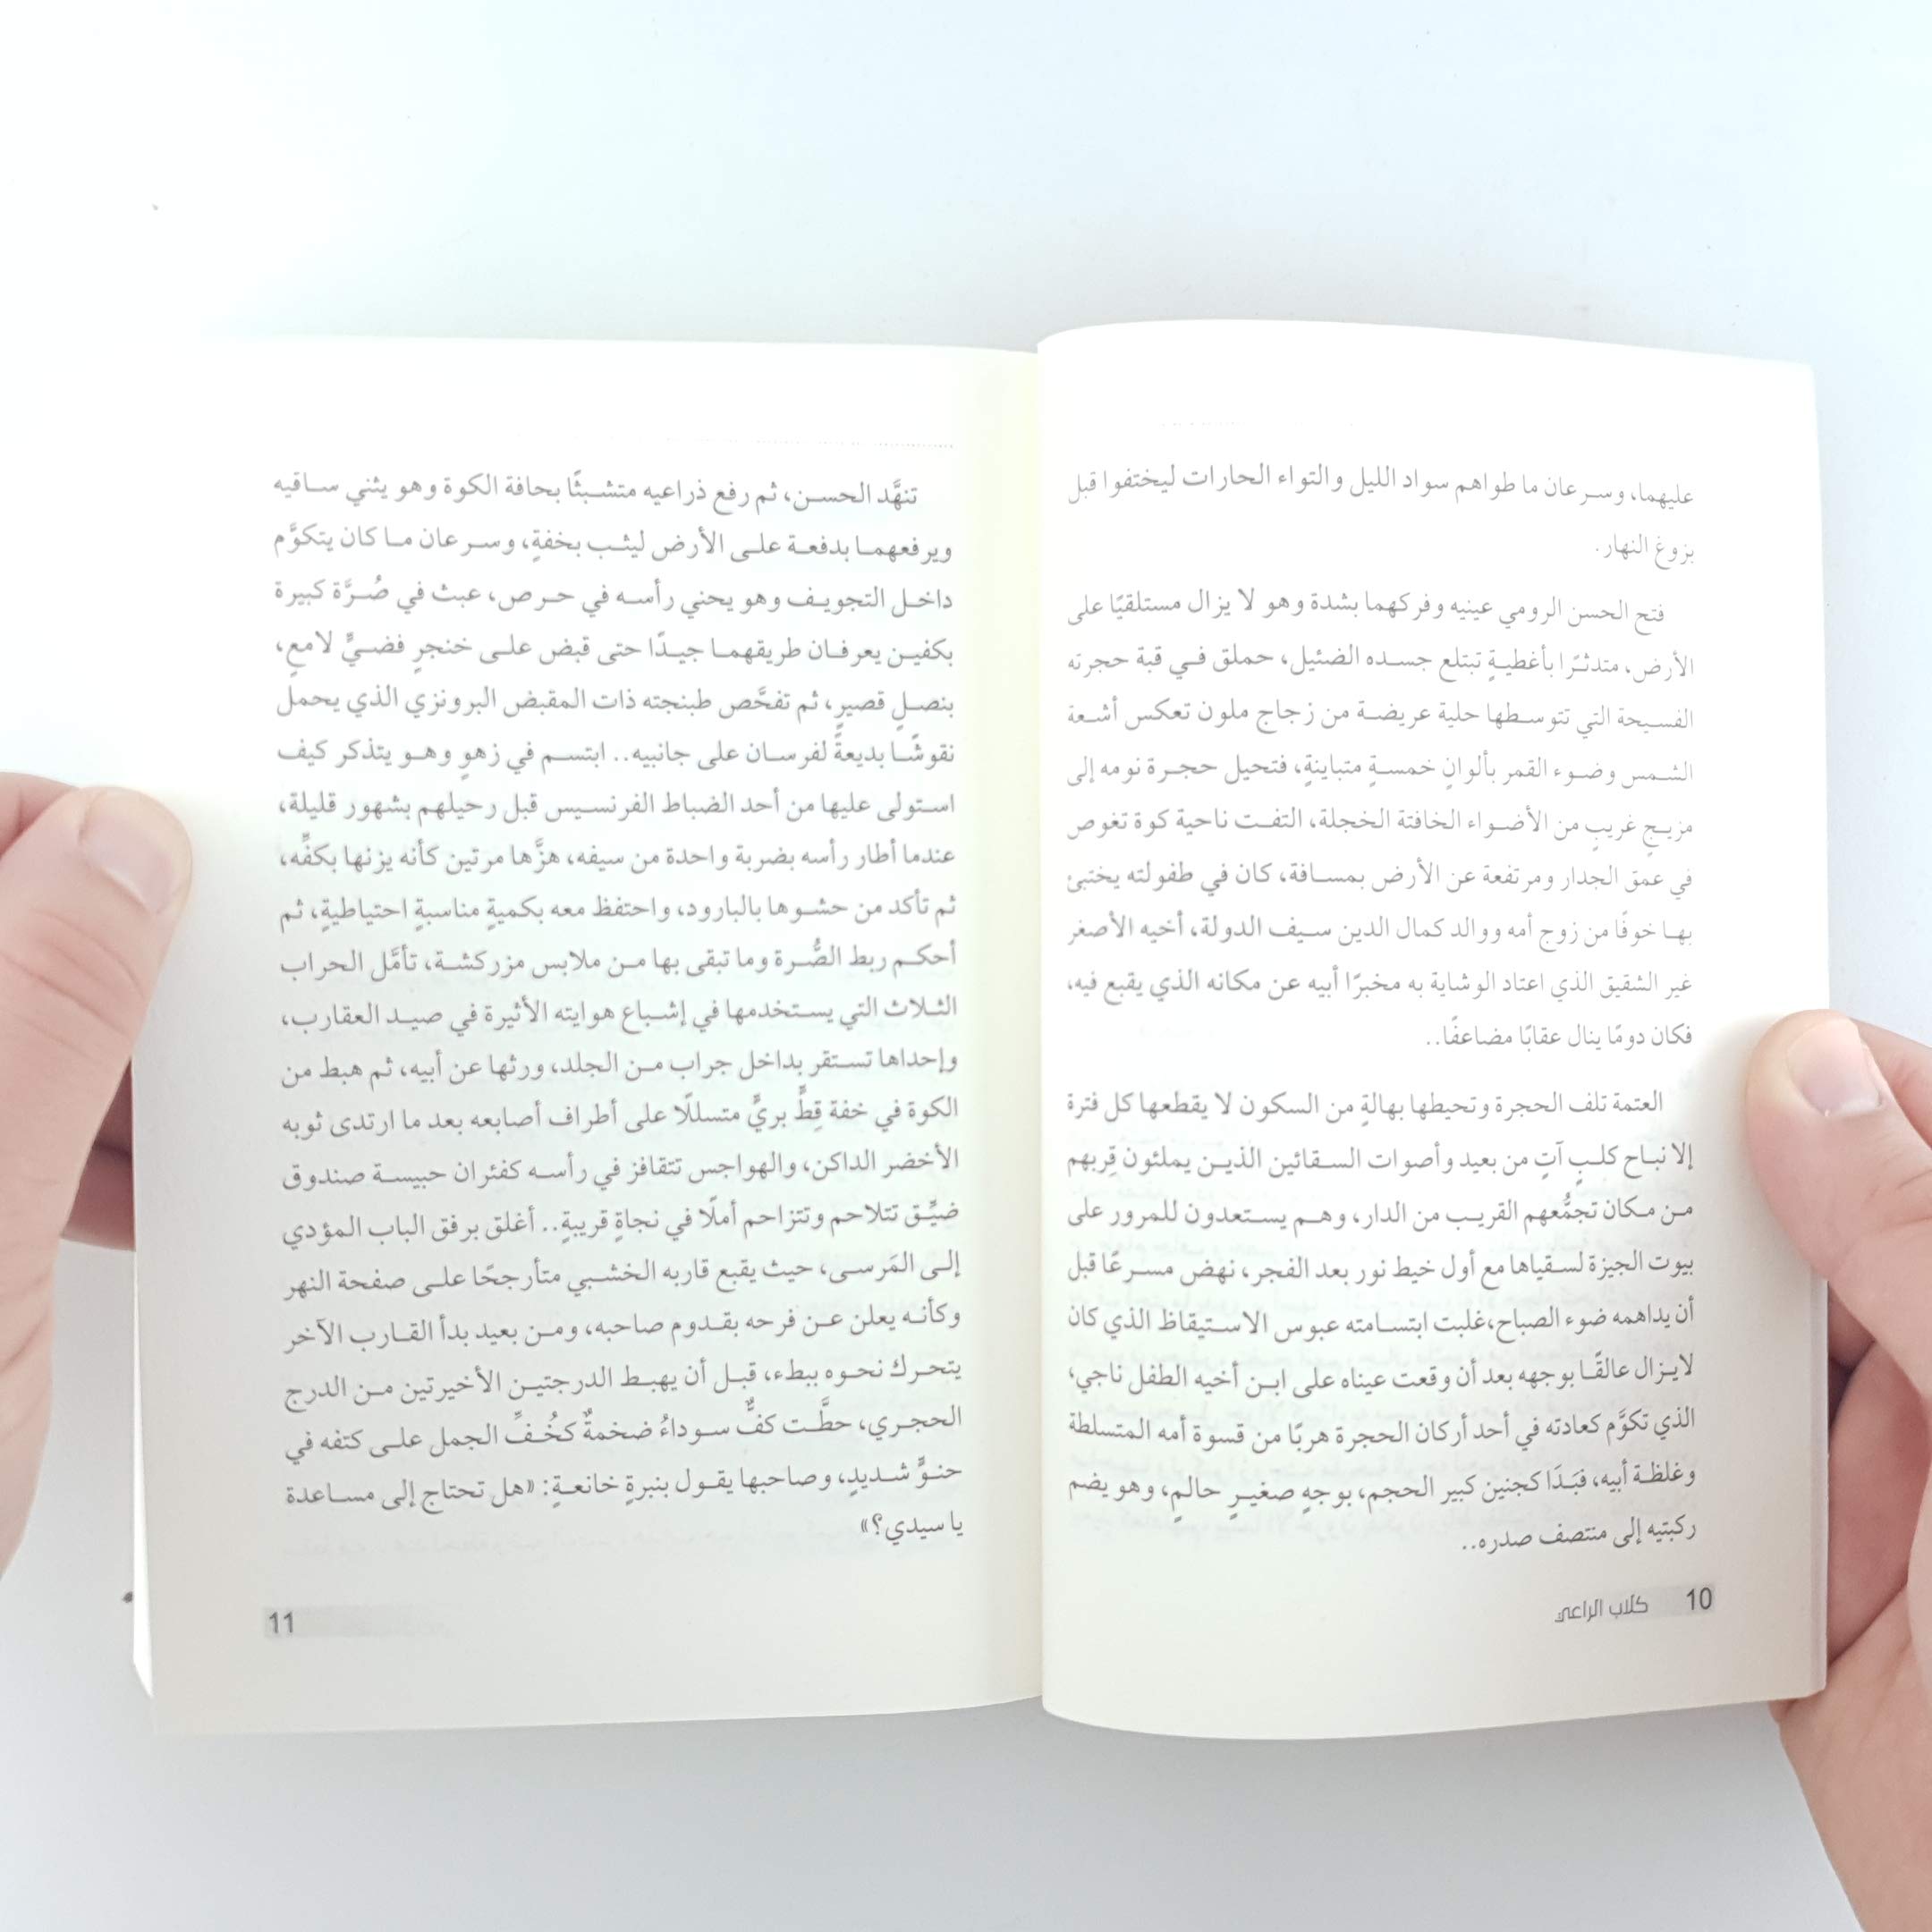 عليهما، وسرعان ما طواهم سواد الليل والتواء الحارات ليختفوا قبل
بزوغ النهار.
فتح الحسن الرومي عينيه وفركهما بشدة وهو لا يزال مستلقيًا على
الأرض، متدثرًا بأغطيةٍ تبتلع جسده الضئيل، حملق في قبة حجرته
الفسيحة التي تتوسطها حلية عريضة من زجاج ملون تعكس أشعة
الشمس وضوء القمر بألوانٍ خمسةٍ متباينةٍ، فتحيل حجرة نومه إلى
مزيجٍ غريبٍ من الأضواء الخافتة الخجلة، التفت ناحية كوة تغوص
في عمق الجدار ومرتفعة عن الأرض بمسافة، كان في طفولته يختبئ
بها خوفًا من زوج أمه ووالد كمال الدين سيف الدولة، أخيه الأصغر
غير الشقيق الذي اعتاد الوشاية به مخبرًا أبيه عن مكانه الذي يقبع فيه،
فكان دومًا ينال عقابًا مضاعفًا..
العتمة تلف الحجرة وتحيطها بهالةٍ من السكون لا يقطعها كل فترة
إلا نباح كلبٍ آتٍ من بعيد وأصوات السقائين الذين يملئون قِربهم
من مكان تجمُّعهم القريب من الدار، وهم يستعدون للمرور على
بيوت الجيزة لسقياها مع أول خيط نور بعد الفجر، نهض مسرعًا قبل
أن يداهمه ضوء الصباح،غلبت ابتسامته عبوس الاستيقاظ الذي كان
لايزال عالقًا بوجهه بعد أن وقعت عيناه على ابن أخيه الطفل ناجي،
الذي تكوَّم كعادته في أحد أركان الحجرة هربًا من قسوة أمه المتسلطة
وغلظة أبيه، فبَدَا كجنين كبير الحجم، بوجهٍ صغيرٍ حالمٍ، وهو يضم
ركبتيه إلى منتصف صدره..
10 كلاب الراعي
تنهَّد الحسن، ثم رفع ذراعيه متشبثًا بحافة الكوة وهو يثني ساقيه
ويرفعهما بدفعة على الأرض ليثب بخفةٍ، وسرعان ما كان يتكوَّم
داخل التجويف وهو يحني رأسه في حرص، عبث في صُرَّة كبيرة
بكفين يعرفان طريقهما جيدًا حتى قبض على خنجرٍ فضيٍّ لامعٍ،
بنصلٍ قصيرٍ، ثم تفحَّص طبنجته ذات المقبض البرونزي الذي يحمل
نقوشًا بديعةً لفرسان على جانبيه.. ابتسم في زهوٍ وهو يتذكر كيف
استولى عليها من أحد الضباط الفرنسيس قبل رحيلهم بشهور قليلة،
عندما أطار رأسه بضربة واحدة من سيفه، هزَّها مرتين كأنه يزنها بكفِّه،
ثم تأكد من حشوها بالبارود، واحتفظ معه بكميةٍ مناسبةٍ احتياطيةٍ، ثم
أحكم ربط الصُّرة وما تبقى بها من ملابس مزركشة، تأمَّل الحراب
الثلاث التي يستخدمها في إشباع هوايته الأثيرة في صيد العقارب،
وإحداها تستقر بداخل جراب من الجلد، ورثها عن أبيه، ثم هبط من
الكوة في خفة قِطٍّ بريٍّ متسللًا على أطراف أصابعه بعد ما ارتدى ثوبه
الأخضر الداكن، والهواجس تتقافز في رأسه كفئران حبيسة صندوق
ضيِّق تتلاحم وتتزاحم أملًا في نجاةٍ قريبةٍ.. أغلق برفق الباب المؤدي
إلى المَرسى، حيث يقبع قاربه الخشبي متأرجحًا على صفحة النهر
وكأنه يعلن عن فرحه بقدوم صاحبه، ومن بعيد بدأ القارب الآخر
يتحرك نحوه ببطء، قبل أن يهبط الدرجتين الأخيرتين من الدرج
الحجري، حطَّت كفٌّ سوداءُ ضخمةٌ كخُفِّ الجمل على كتفه في
حنوٍّ شديدٍ، وصاحبها يقول بنبرةٍ خانعةٍ: «هل تحتاج إلى مساعدة
يا سيدي؟»
11